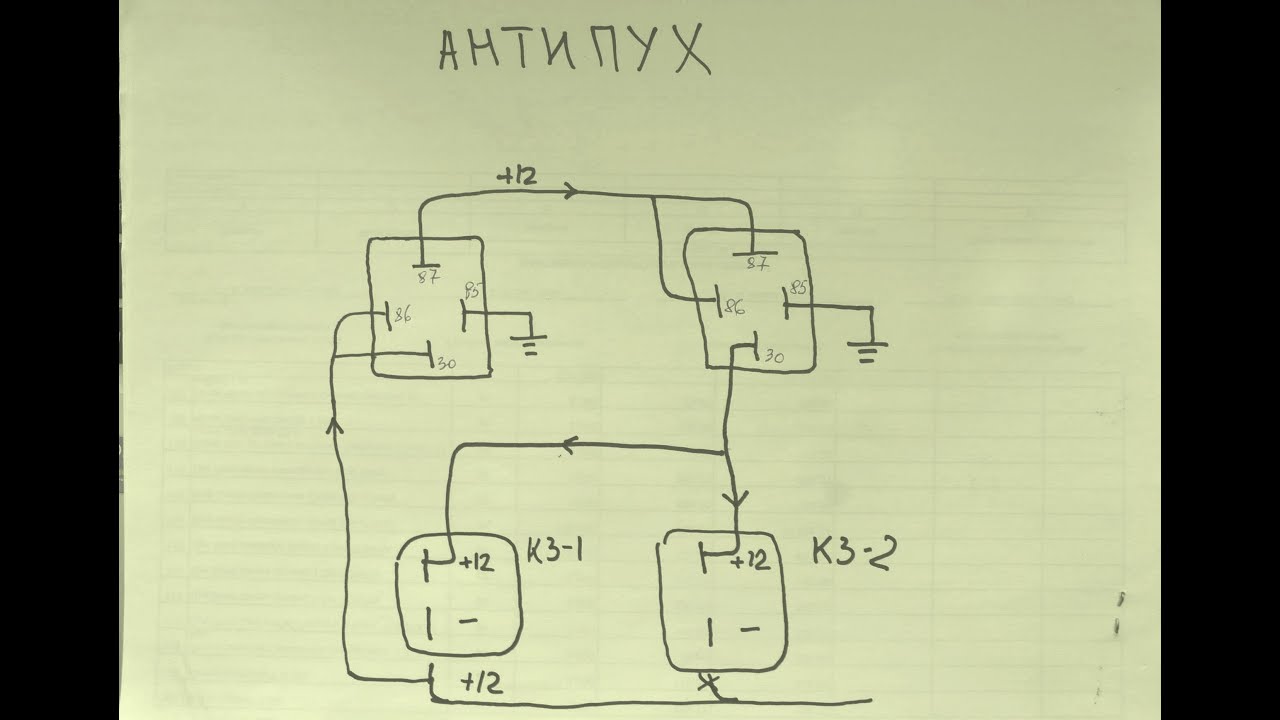 АНТИПУХ
+12
87
87
85
85
86
86
30
30
КЗ-1
КЗ-2
+12
+12
-
-
+12